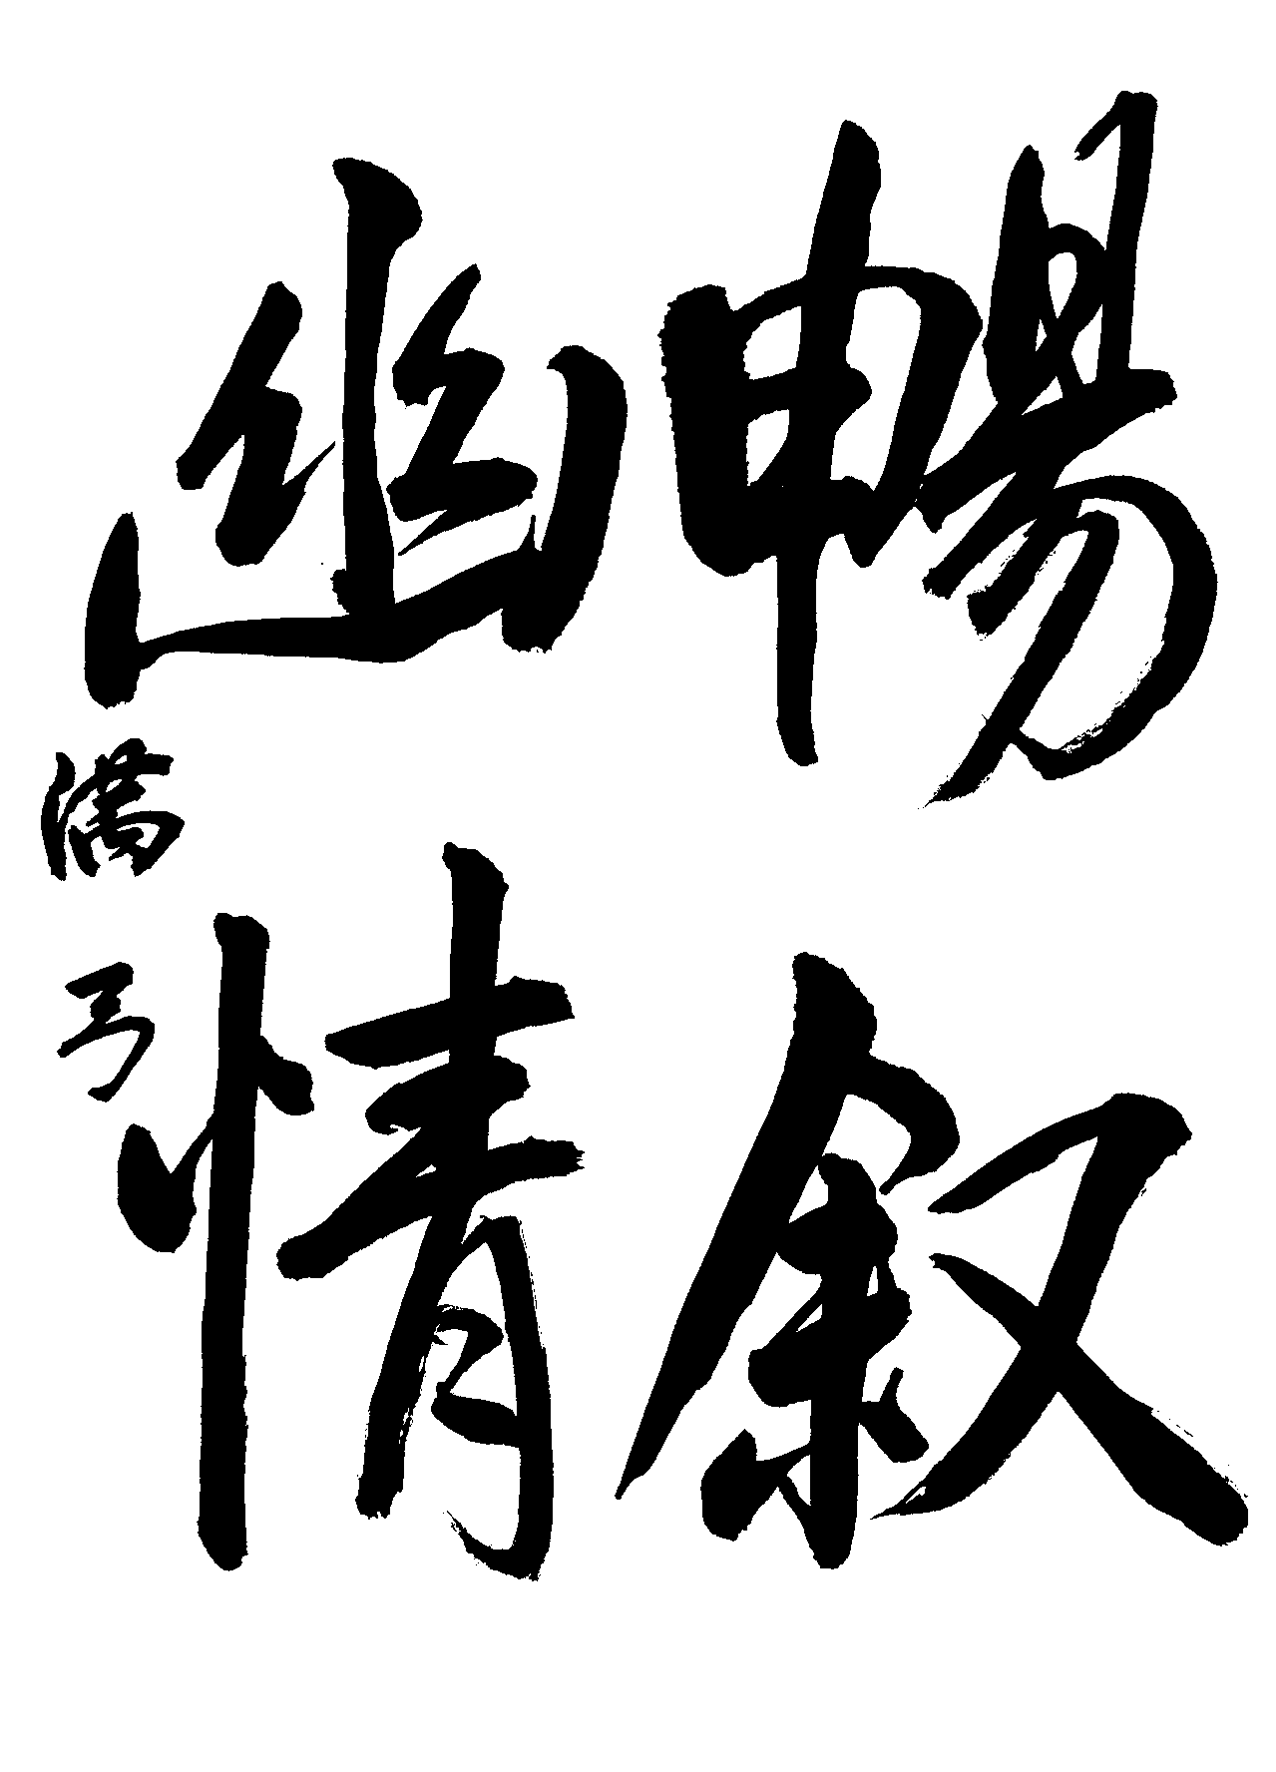 暢叙
幽情
満弓